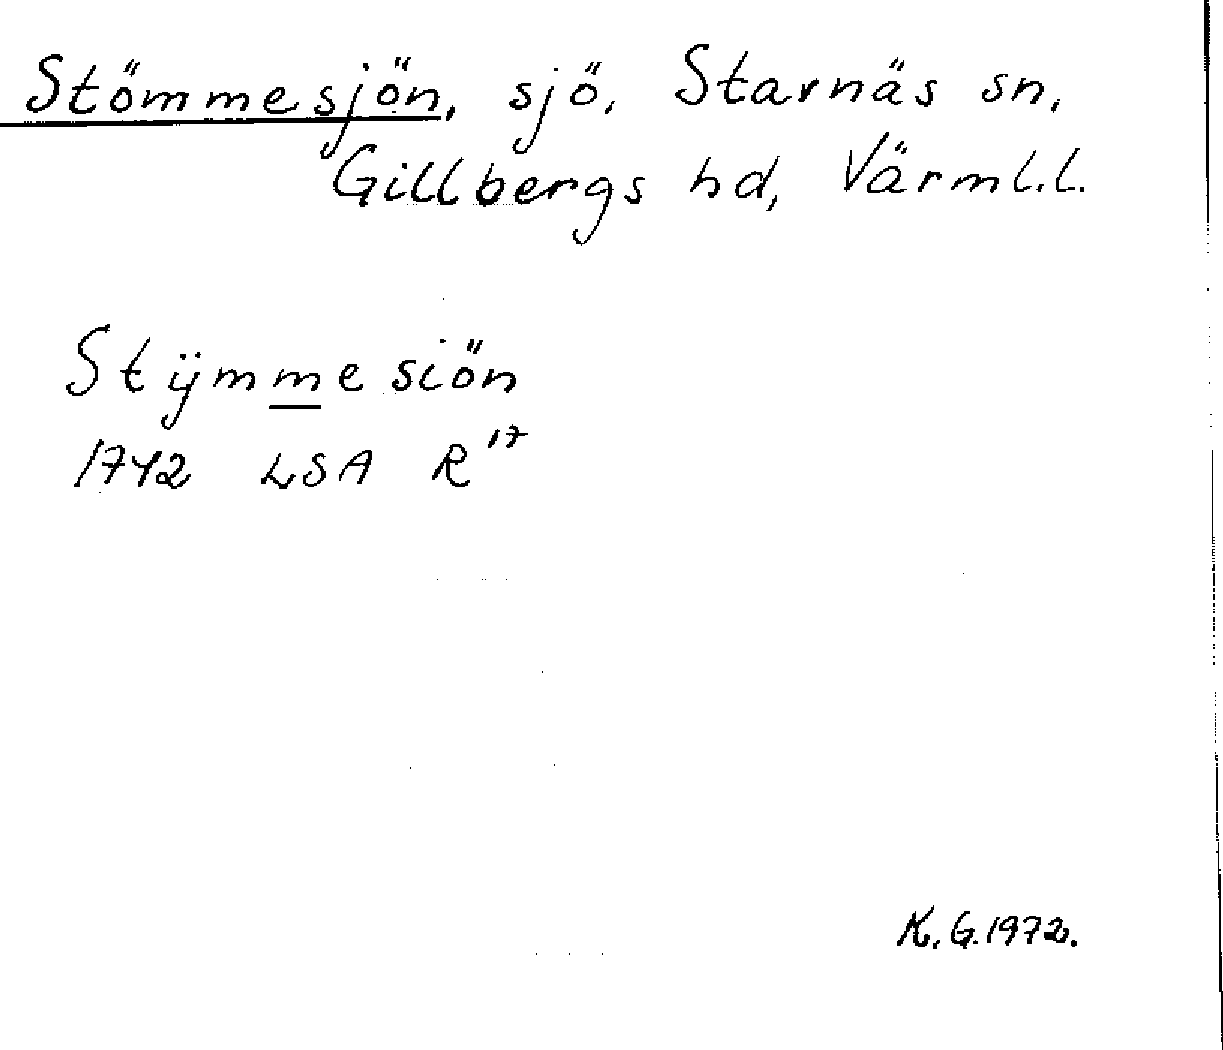 Stömmesjön, sjö, Starnäs sn,
Gillbergs hd, Värml.l.
Stÿmmesiön
1742 LSA R¹⁷
K.G.1972.